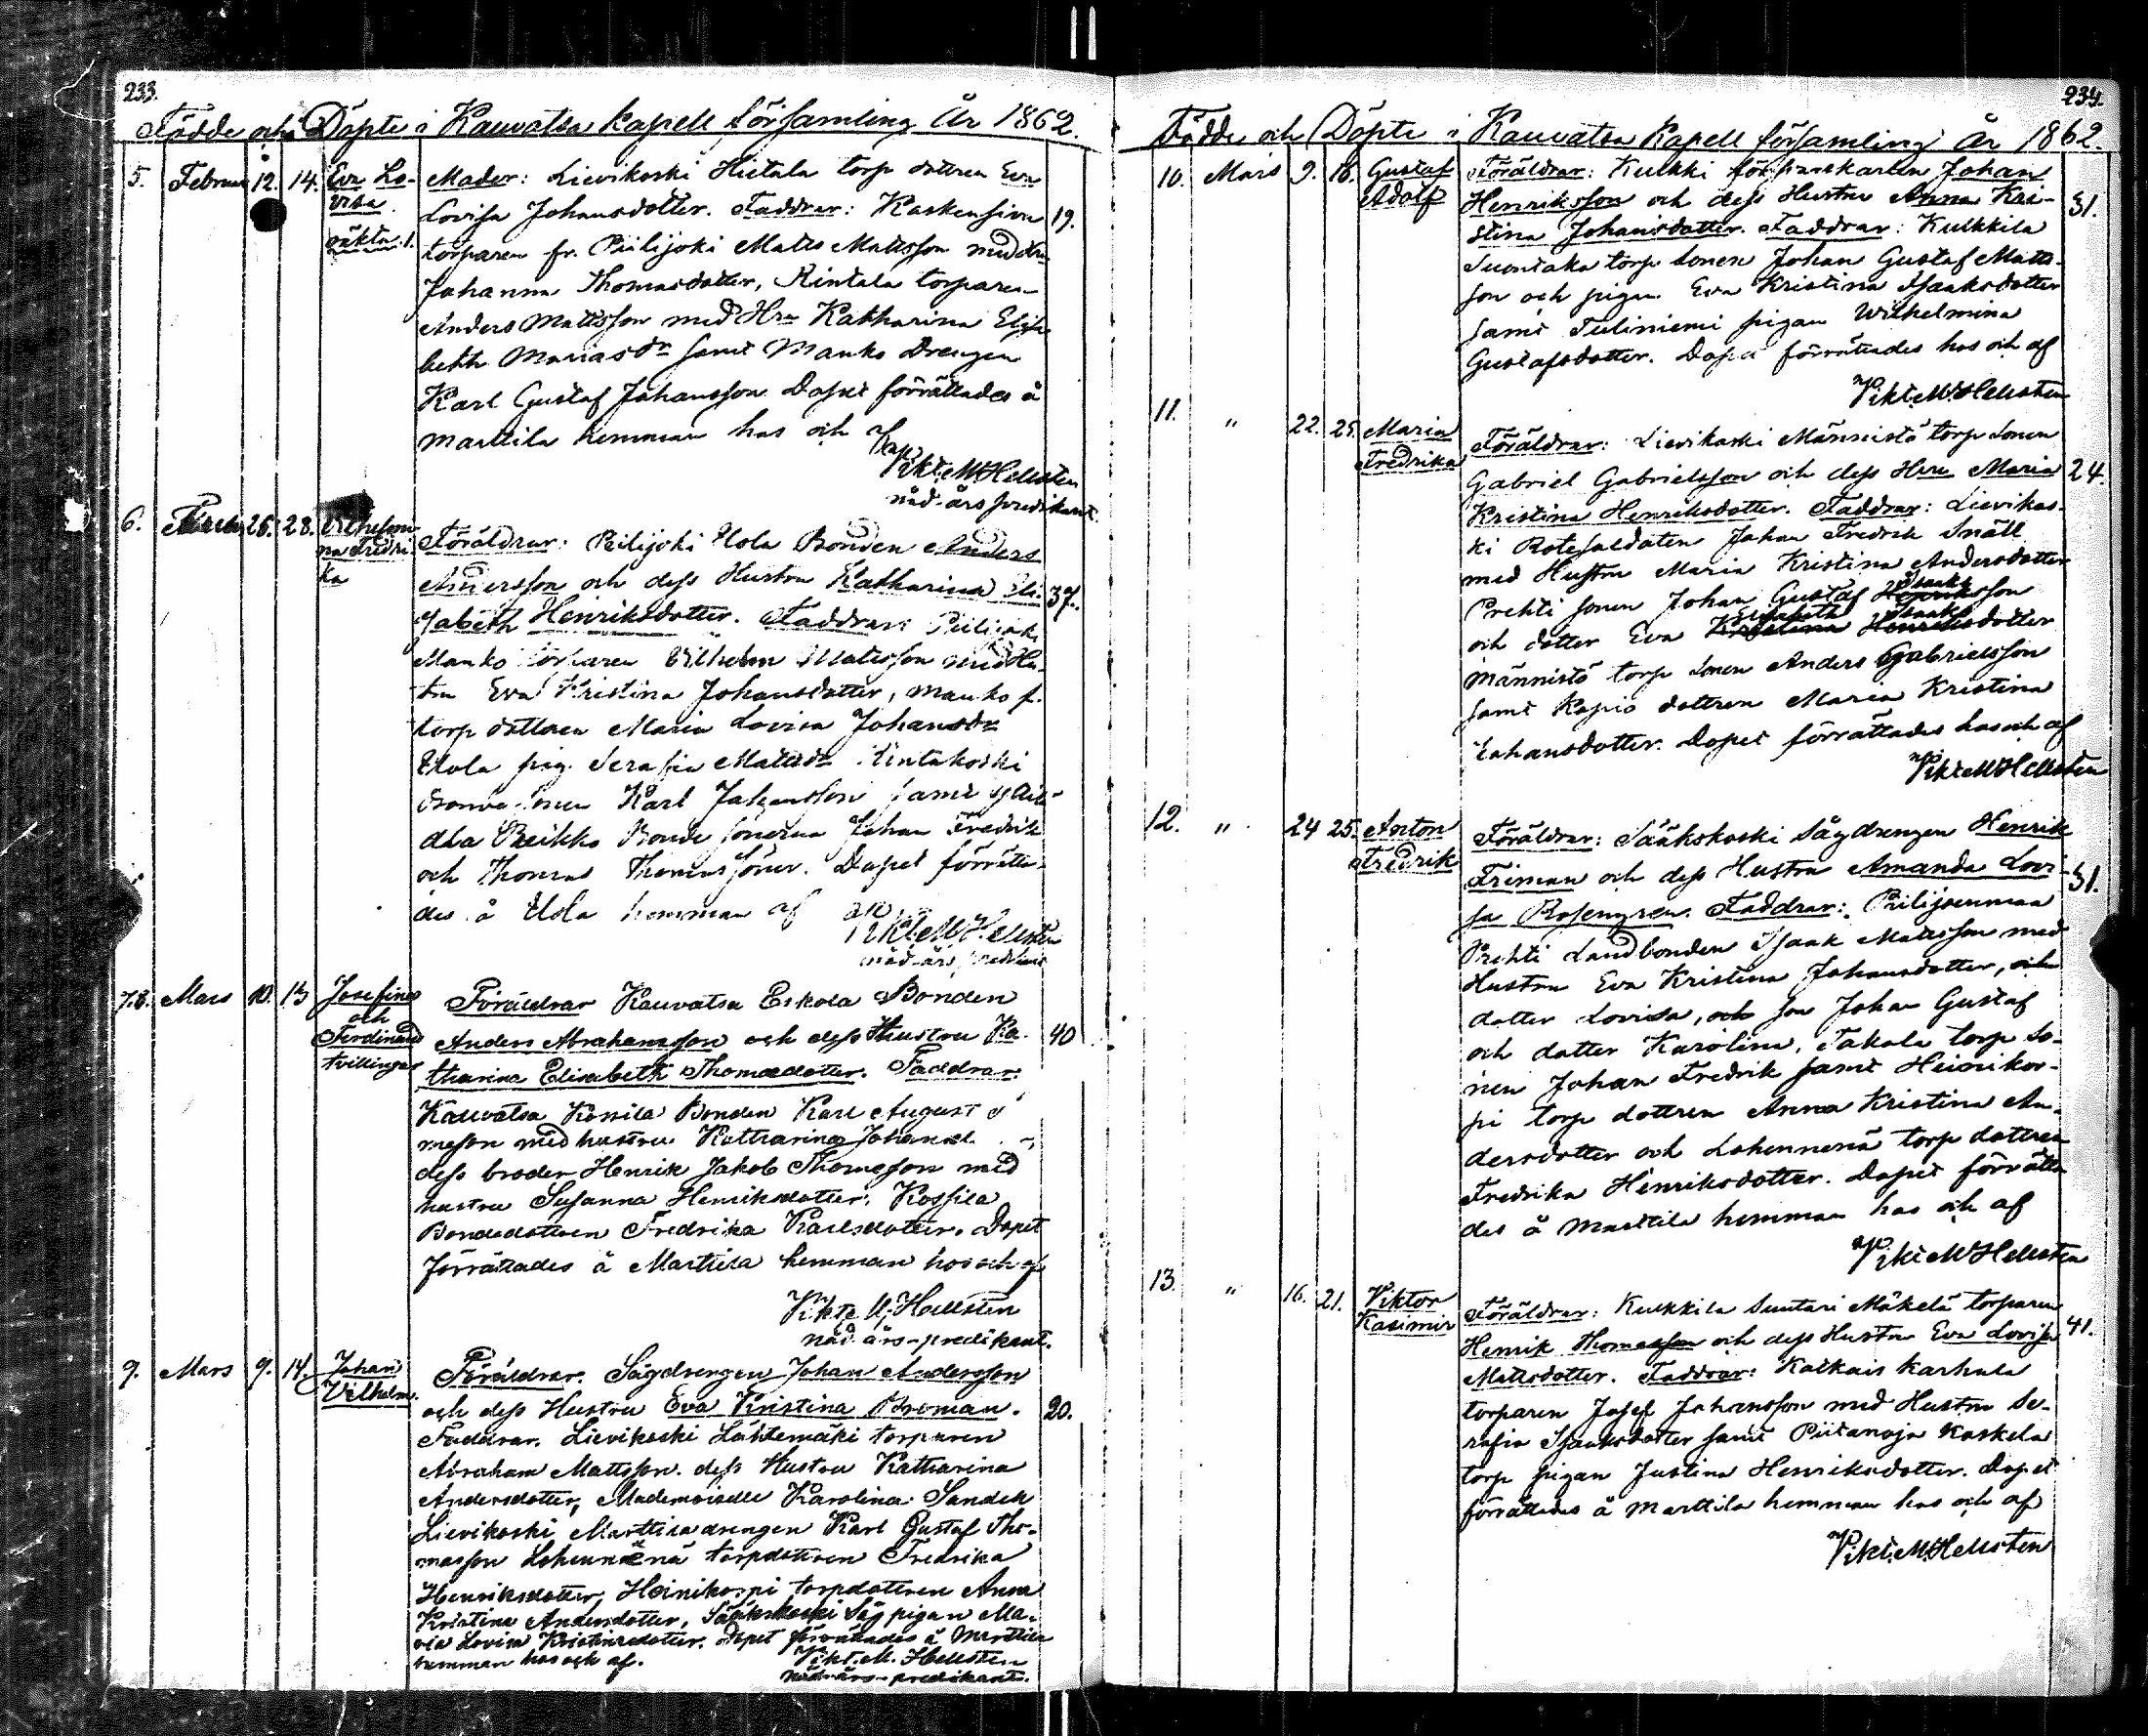 233.
Födde och Döpte i Kauvatsa kapell församling År 1862.
5. Februar 12. 14. Eva Lo- Moder: Lievikoski Hietala torp dottren Eva
visa Lovisa Johansdotter. Faddrar: Kaskensivu 19.
oäkta. 1. torparen fr. Piilijoki Matts Mattsson med Hru
Johanna Thomasdotter, Rintala torparen
Anders Mattsson med Hru Katharina Elisa
beth Mariasdr samt Manko Drengen
Karl Gustaf Johansson. Dopet förrättades å
Marttila hemman hos och af
Vikt. M. Hellsten
nåd-års predikant.
6. 26. 28. Vilhelmi
na Fredri Föräldrar: Piilijoki Uola Bonden Anders
ka Andersson och dess Hustru Katharina Eli- 37.
sabeth Henriksdotter. Faddrar: Piilijoki
Manko torparen Vilhelm Mattsson med Hu-
stru Eva Kristina Johansdotter, Manko f.
torp dottren Maria Lovisa Johansdr
Uola pig. Serafia Mattsdr Rintakoski
Bonde sonen Karl Johansson samt
Peikko Bonde sönerna Johan Fredrik
och Thomas Thomas söner. Dopet förrätta-
des å Uola hemman af
Vikt. M. Hellsten
nåd-års predikant
7.8. Mars 10. 13 Josefina Föräldrar Kauvatsa Eskola Bonden
och
Ferdinand Anders Abrahamsson och dess Hustru Ka- 40
tvillingar tharina Elisabeth Thomasdotter. Faddrar.
Kauvatsa Kossila Bonden Karl August
med hustru Katharina
dess broder Henrik Jakob Thomasson med
hustru Susanna Henriksdotter. Kossila
Bondedottren Fredrika Karlsdotter. Dopet
förrättades å Marttila hemman hos och af
Vikt. M. Hellsten
nåd-års-predikant.
9. Mars 9. 14. Johan Föräldrar. Sågdrengen Johan Andersson
Vilhelm. och dess Hustru Eva Kristina Broman. 20.
Faddrar. Lievikoski Lähtemäki torparen
Abraham Mattsson. dess Hustru Katharina
Andersdotter, Mademoiselle Karolina Sandek
Lievikoski Marttila drengen Karl Gustaf Tho-
masson Lohennenä torpdottren Fredrika
Henriksdotter, Heinikorpi torpdottren Anna
Kristina Andersdotter, Sääkskoski Såg pigan Ma-
ria Lovisa Kristinasdotter. Dopet förrättades å Marttila
hemman hos och af. Vikt. M. Hellsten
nåd-års-predikant.
234.
Födde och Döpte i Kauvatsa Kapell församling År 1862.
10. Mars 9. 16. Gustaf Föräldrar: Kulkki Johan
Adolf Henriksson och dess Hustru Anna Kri- 31.
stina Johansdotter. Faddrar: Kulkkila
Suontaka torp sonen Johan Gustaf Matts-
son och pigan Eva Kristina Isaaksdotter
samt Tuliniemi pigan Wilhelmina
Gustafsdotter. Dopet förrättades hos och af
Vikt. M. Hellsten
11. " 22. 25. Maria Föräldrar: Lievikoski Männistö torp sonen
Fredrika Gabriel Gabrielsson och dess Hru Maria 24.
Kristina Henriksdotter. Faddrar: Lievikos-
ki Rotesoldaten Johan Fredrik Snäll
med Hustru Maria Kristina Andersdotter
Isaaks
Prehti sonen Johan Gustaf Henriksson
Elisabeth Isaaks
och dotter Eva Kristina Henriksdotter
männistö torp sonen Anders Gabrielsson
samt Kapio dottren Maria Kristina
Johansdotter. Dopet förrättades hos och af
Vikt. M. Hellsten
12. " 24 25. Anton Föräldrar: Sääkskoski Sågdrengen Henrik
Fredrik Friman och dess Hustru Amanda Lovi- 31.
sa Rosengren. Faddrar: Piilijoenmaa
Prehti Landbonden Isaak Mattsson med
Hustru Eva Kristina Johansdotter, och
dotter Lovisa, och son Johan Gustaf
och dotter Karolina, Takala torp so-
nen Johan Fredrik samt Heinikor-
pi torp dottren Anna Kristina An-
dersdotter och Lohennenä torp dottren
Fredrika Henriksdotter. Dopet förrätta
des å Marttila hemman hos och af
Vikt. M. Hellsten
13. " 16. 21. Viktor Föräldrar: Kulkkila Suntari Mäkelä torparen
Kasimir Henrik Thomasson och dess Hustru Eva Lovisa 41.
Mattsdotter. Faddrar: Kalkais Karhula
torparen Josef Johansson med Hustru Se-
rafia Isaaksdotter samt Piitanoja Kaskela
torp pigan Justina Henriksdotter. Dopet
förrättades å Marttila hemman hos och af
Vikt. M. Hellsten